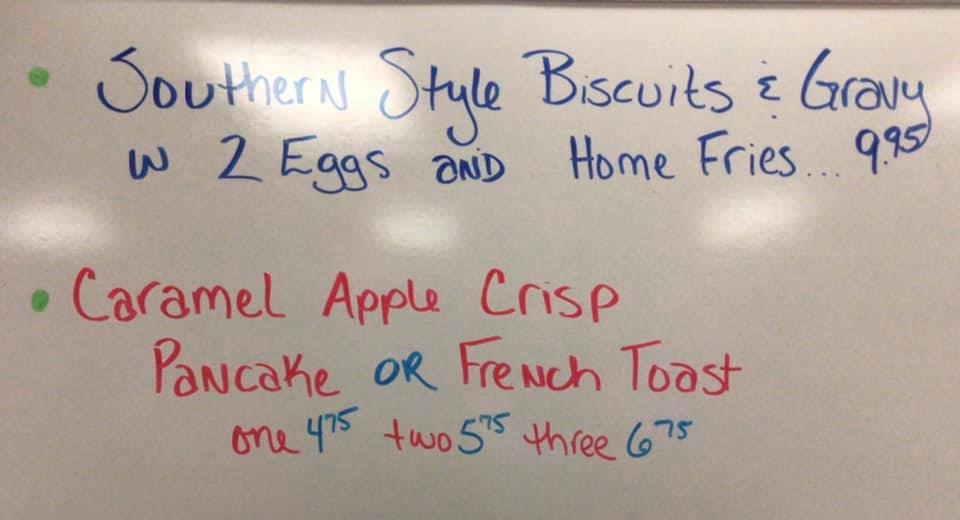 • Southern Style Biscuits & Gravy
w 2 Eggs AND Home Fries... 9.95
• Caramel Apple Crisp
Pancake OR French Toast
one 4 75 two 5 75 three 6 75